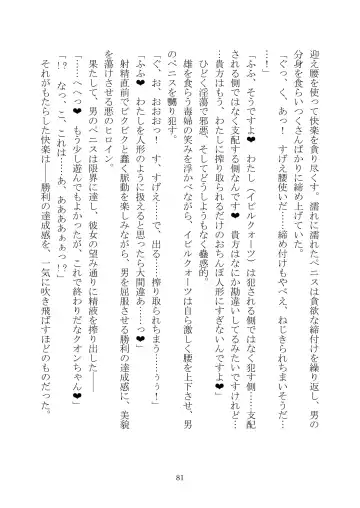 迎え腰を使って快楽を貪り尽くす。濡れに濡れたペニスは貪欲な締付けを繰り返し、男の
分身を食らいつくさんばかりに締め上げていた。
「ぐっ、く、あっ！　すげえ腰使いだ……締め付けもやべえ、ねじきられちまいそうだ…
…！」
「ふふ、そうですよ❤　わたし（イビルクォーツ）は犯される側ではなく犯す側……支配
される側ではなく支配する側なんですよ❤　貴方はなにか勘違いしてるみたいですけれど…
…貴方はもう、わたしに搾り取られるだけのおちんぽ人形にすぎないんですよ❤」
ひどく淫蕩で邪悪、そしてどうしようもなく蠱惑的。
雄を食らう毒婦の笑みを浮かべながら、イビルクォーツは自ら激しく腰を上下させ、男
のペニスを嬲り犯す。
「ぐ、お、おおっ！　す、すげえ……、出る……搾り取られちまう……ぅぅ！」
「ふふ❤　わたしを人形のように扱えるとか思ったら大間違あ……っ❤」
射精直前でビクビクと蠢く脈動を楽しみながら、男を屈服させる勝利の達成感に、美貌
を蕩けさせる悪のヒロイン。
果たして、男のペニスは限界に達し、彼女の望み通りに精液を搾り出した――
「……へっ❤　もう少し遊んでもよかったが、これで終わりだなクオンちゃん❤」
「？　なっ、こ、これは……あ、ああああぁぁっ！？」
それがもたらした快楽は――勝利の達成感を、一気に吹き飛ばすほどのものだった。
81